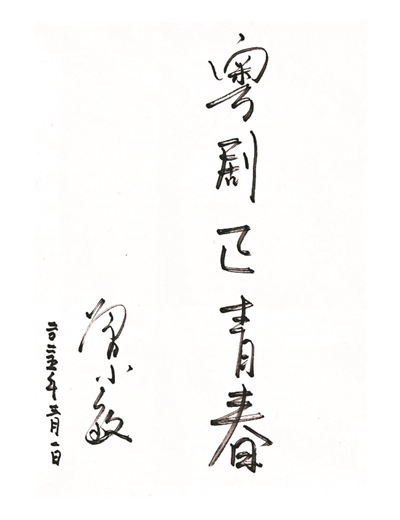 粤剧正青春
曾小敏
二〇二五年五月一日